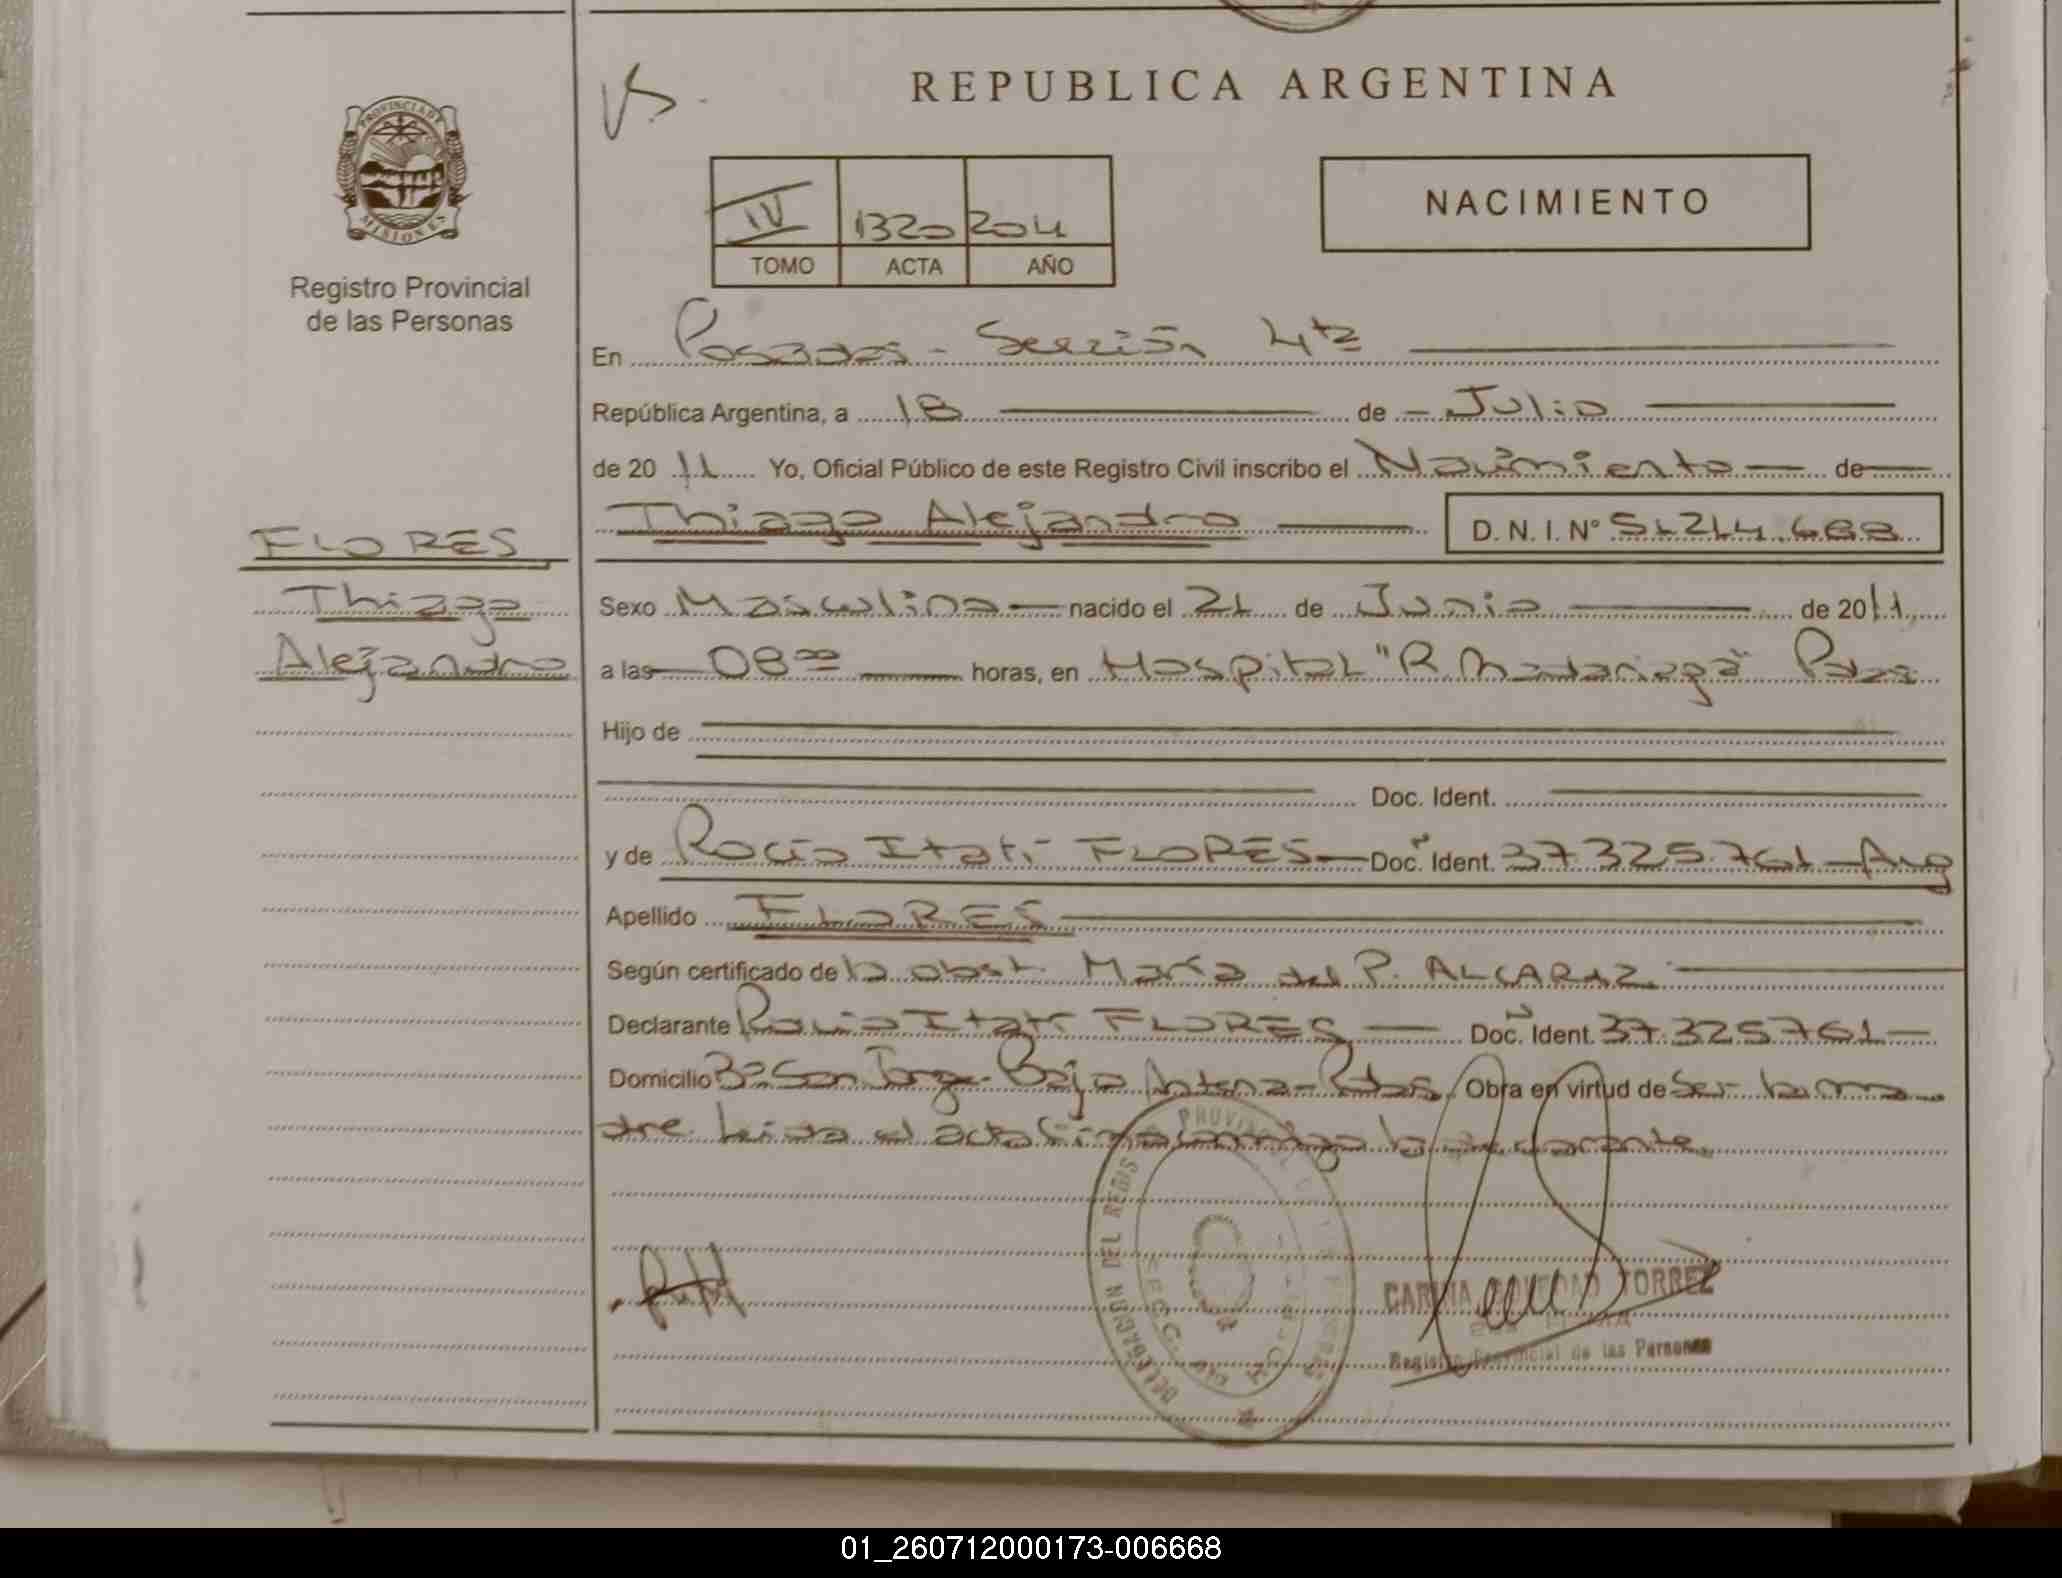 REPUBLICA ARGENTINA
PROVINCIA DE
MISIONES
Registro Provincial
de las Personas
NACIMIENTO
IV 1320 2011
TOMO ACTA AÑO
En Posadas - Sección 4ta
República Argentina, a 18 de Julio
de 20 11 Yo, Oficial Público de este Registro Civil inscribo el Nacimiento de
Thiago Alejandro D. N. I. N° 51.214.688
FLORES
Thiago
Alejandro
Sexo Masculino nacido el 21 de Junio de 2011
a las 08 00 horas, en Hospital "R. Madariaga" Pdas
Hijo de
Doc. Ident.
y de Rocío Itatí FLORES Doc. Ident. 37.325.761 - Arg
Apellido FLORES
Según certificado de la obst. María del P. ALCARAZ
Declarante Rocío Itatí FLORES Doc. Ident. 37.325761
Domicilio Bº San Jorge - Bajo Antena - Pdas. Obra en virtud de ser la ma
dre. Leida el acta firma conmigo la declarante.
DELEGACION DEL REGIS
PROVINCIAL
SECC.
TORREZ
Registro Provincial de las Personas
01_260712000173-006668